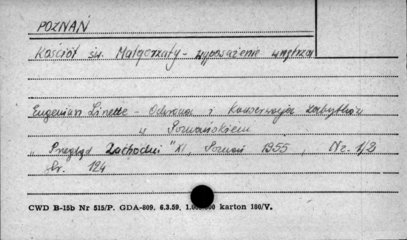 POZNAŃ
Kościół św. Małgorzaty - wyposażenie wnętrza
Eugeniusz Linette - Ochrona i konserwacja zabytków
w Poznańskiem
"Przegląd Zachodni" XI, Poznań 1955, Nr. 1/3
Str. 124
CWD B-15b Nr 515/P. GDA-809, 6.3.59, 1.000.000 karton 180/V.